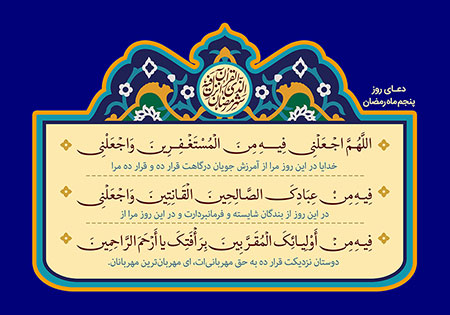 دعـای روز
پنجم ماه رمضان
شهر رمضان الذی انزل فیه القرآن
اَللَّهُمَّ اجْعَلْنِي فِيهِ مِنَ الْمُسْتَغْفِرِينَ وَاجْعَلْنِي
خدایا در این روز مرا از آمرزش جویان درگاهت قرار ده و قرار ده مرا
فِيهِ مِنْ عِبَادِكَ الصَّالِحِينَ الْقَانِتِينَ وَاجْعَلْنِي
در این روز از بندگان شایسته و فرمانبردارت و در این روز مرا از
فِيهِ مِنْ أَوْلِيَائِكَ الْمُقَرَّبِينَ بِرَأْفَتِكَ يَا أَرْحَمَ الرَّاحِمِينَ
دوستان نزدیکت قرار ده به حق مهربانی‌ات، ای مهربان‌ترین مهربانان.